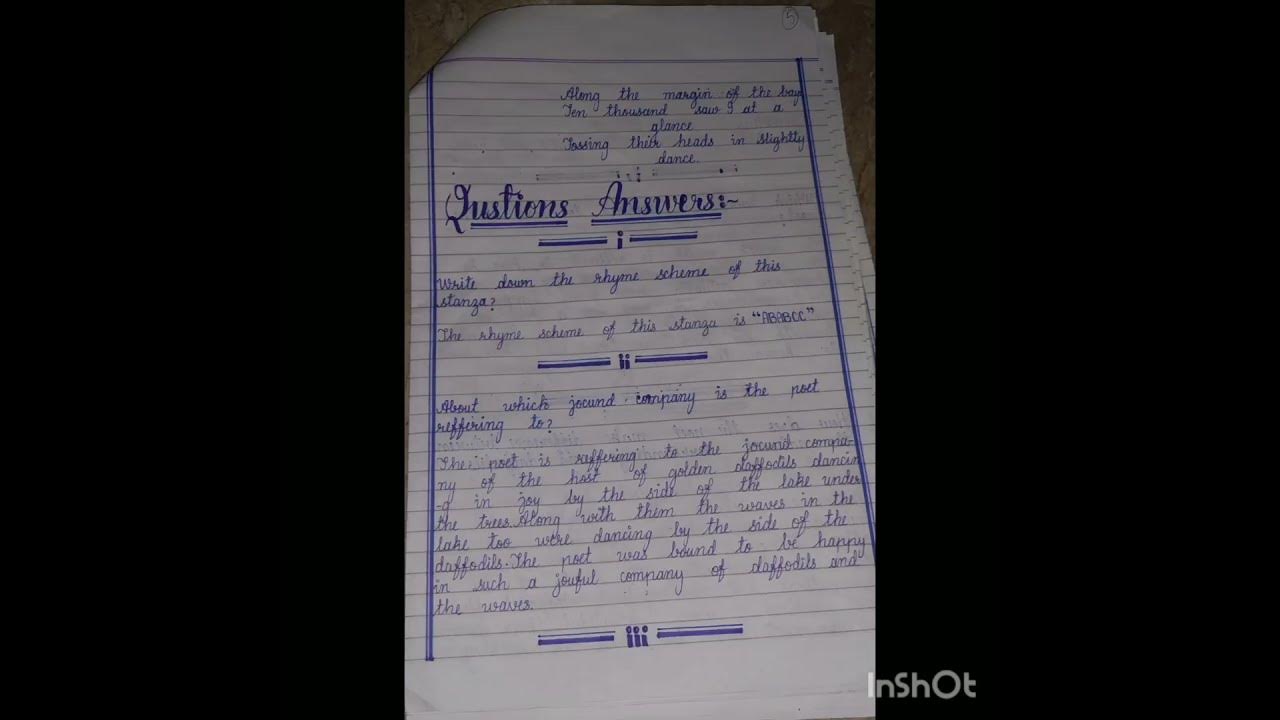 5
Along the margin of the bay
Ten thousand saw I at a
glance
Tossing their heads in slightly
dance.
Qustions Answers:~
i
Write down the rhyme scheme of this
stanza?
The rhyme scheme of this stanza is "ABABCC"
ii
About which jocund company is the poet
reffering to?
The poet is reffering to the jocund compa-
ny of the host of golden daffodils dancin
-g in joy by the side of the lake under
the trees. Along with them the waves in the
lake too were dancing by the side of the
daffodils. The poet was bound to be happy
in such a joyful company of daffodils and
the waves.
iii
InShOt